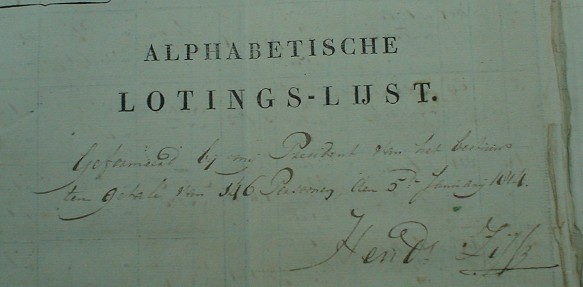 ALPHABETISCHE
LOTINGS-LIJST.
Geformeerd by my President van het bestuur
ten getale van 146 Personen, den 5de January 1814.
Hends